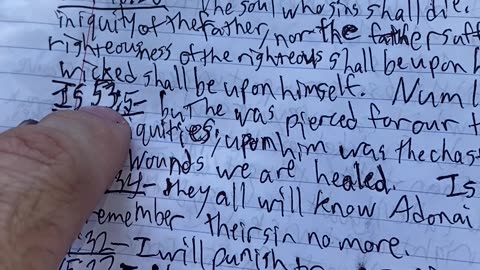 The soul who sins shall die.
iniquity of the father, nor the father suff
righteousness of the righteous shall be upon h
wicked shall be upon himself. Num 1
Is 53:5- but he was pierced for our t
quities, upon him was the chas
wounds we are healed. Is
34- they all will know Adonai
remember their sin no more.
32- I will punish